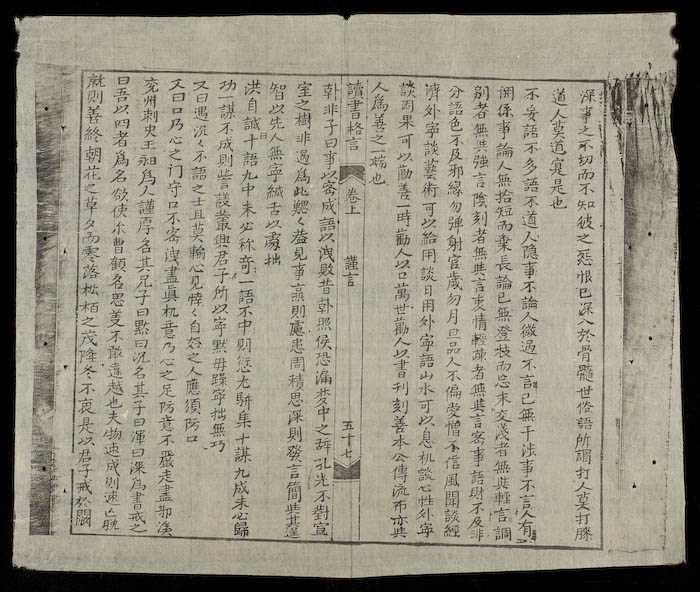 深事之不切而不知彼之怨恨已深入於骨髓世俗語所謂打人莫打膝
道人莫道寔是也
不妄語不多語不道人隱事不論人微過不言已無干涉事不言人有
関係事論人無拾短而棄長論已無登枝而忘末交淺者無與輕言調
別者無與強言陰刻者無與言衷情輕疎者無與言密事語財不及非
分語色不及邪緣勿彈射官歲勿月旦品人不偏愛憎不信風聞談經
濟外寧談藝術可以給用談日用外寧語山水可以息机談心性外寧
談因果可以勸善一時勸人以口萬世勸人以書刊刻善本公傳流布亦與
人為善之一端也
讀書格言 卷上 謹言 五十七
韓非子曰事以密成語以洩敗昔韓照侯恐漏夢中之辞孔光不對宣
室之樹非過為此鰓々葢見事無則慮患周積思深則發言簡與其逞
智以先人無寧緘舌以處拙
洪自誠十語九中未必称竒一語不中則愆尤駢集十謀九成未必歸
功一謀不成則訾議叢興君子所以寧黙毋躁寧拙無巧
又曰遇沉々不語之士且莫輸心見悻々自好之人應須防口
又曰口乃心之门守口不密洩盡真机意乃心之足防意不嚴走盡邪溪
兗州刺史王昶為人謹厚名其兄子曰黙曰沉名其子曰渾曰深為書戒之
曰吾以四者為名欲使尔曹顧名思義不敢違越也夫物速成則速亾晚
就則善終朝花之草夕而零落松栢之茂降冬不衰是以君子戒於闕